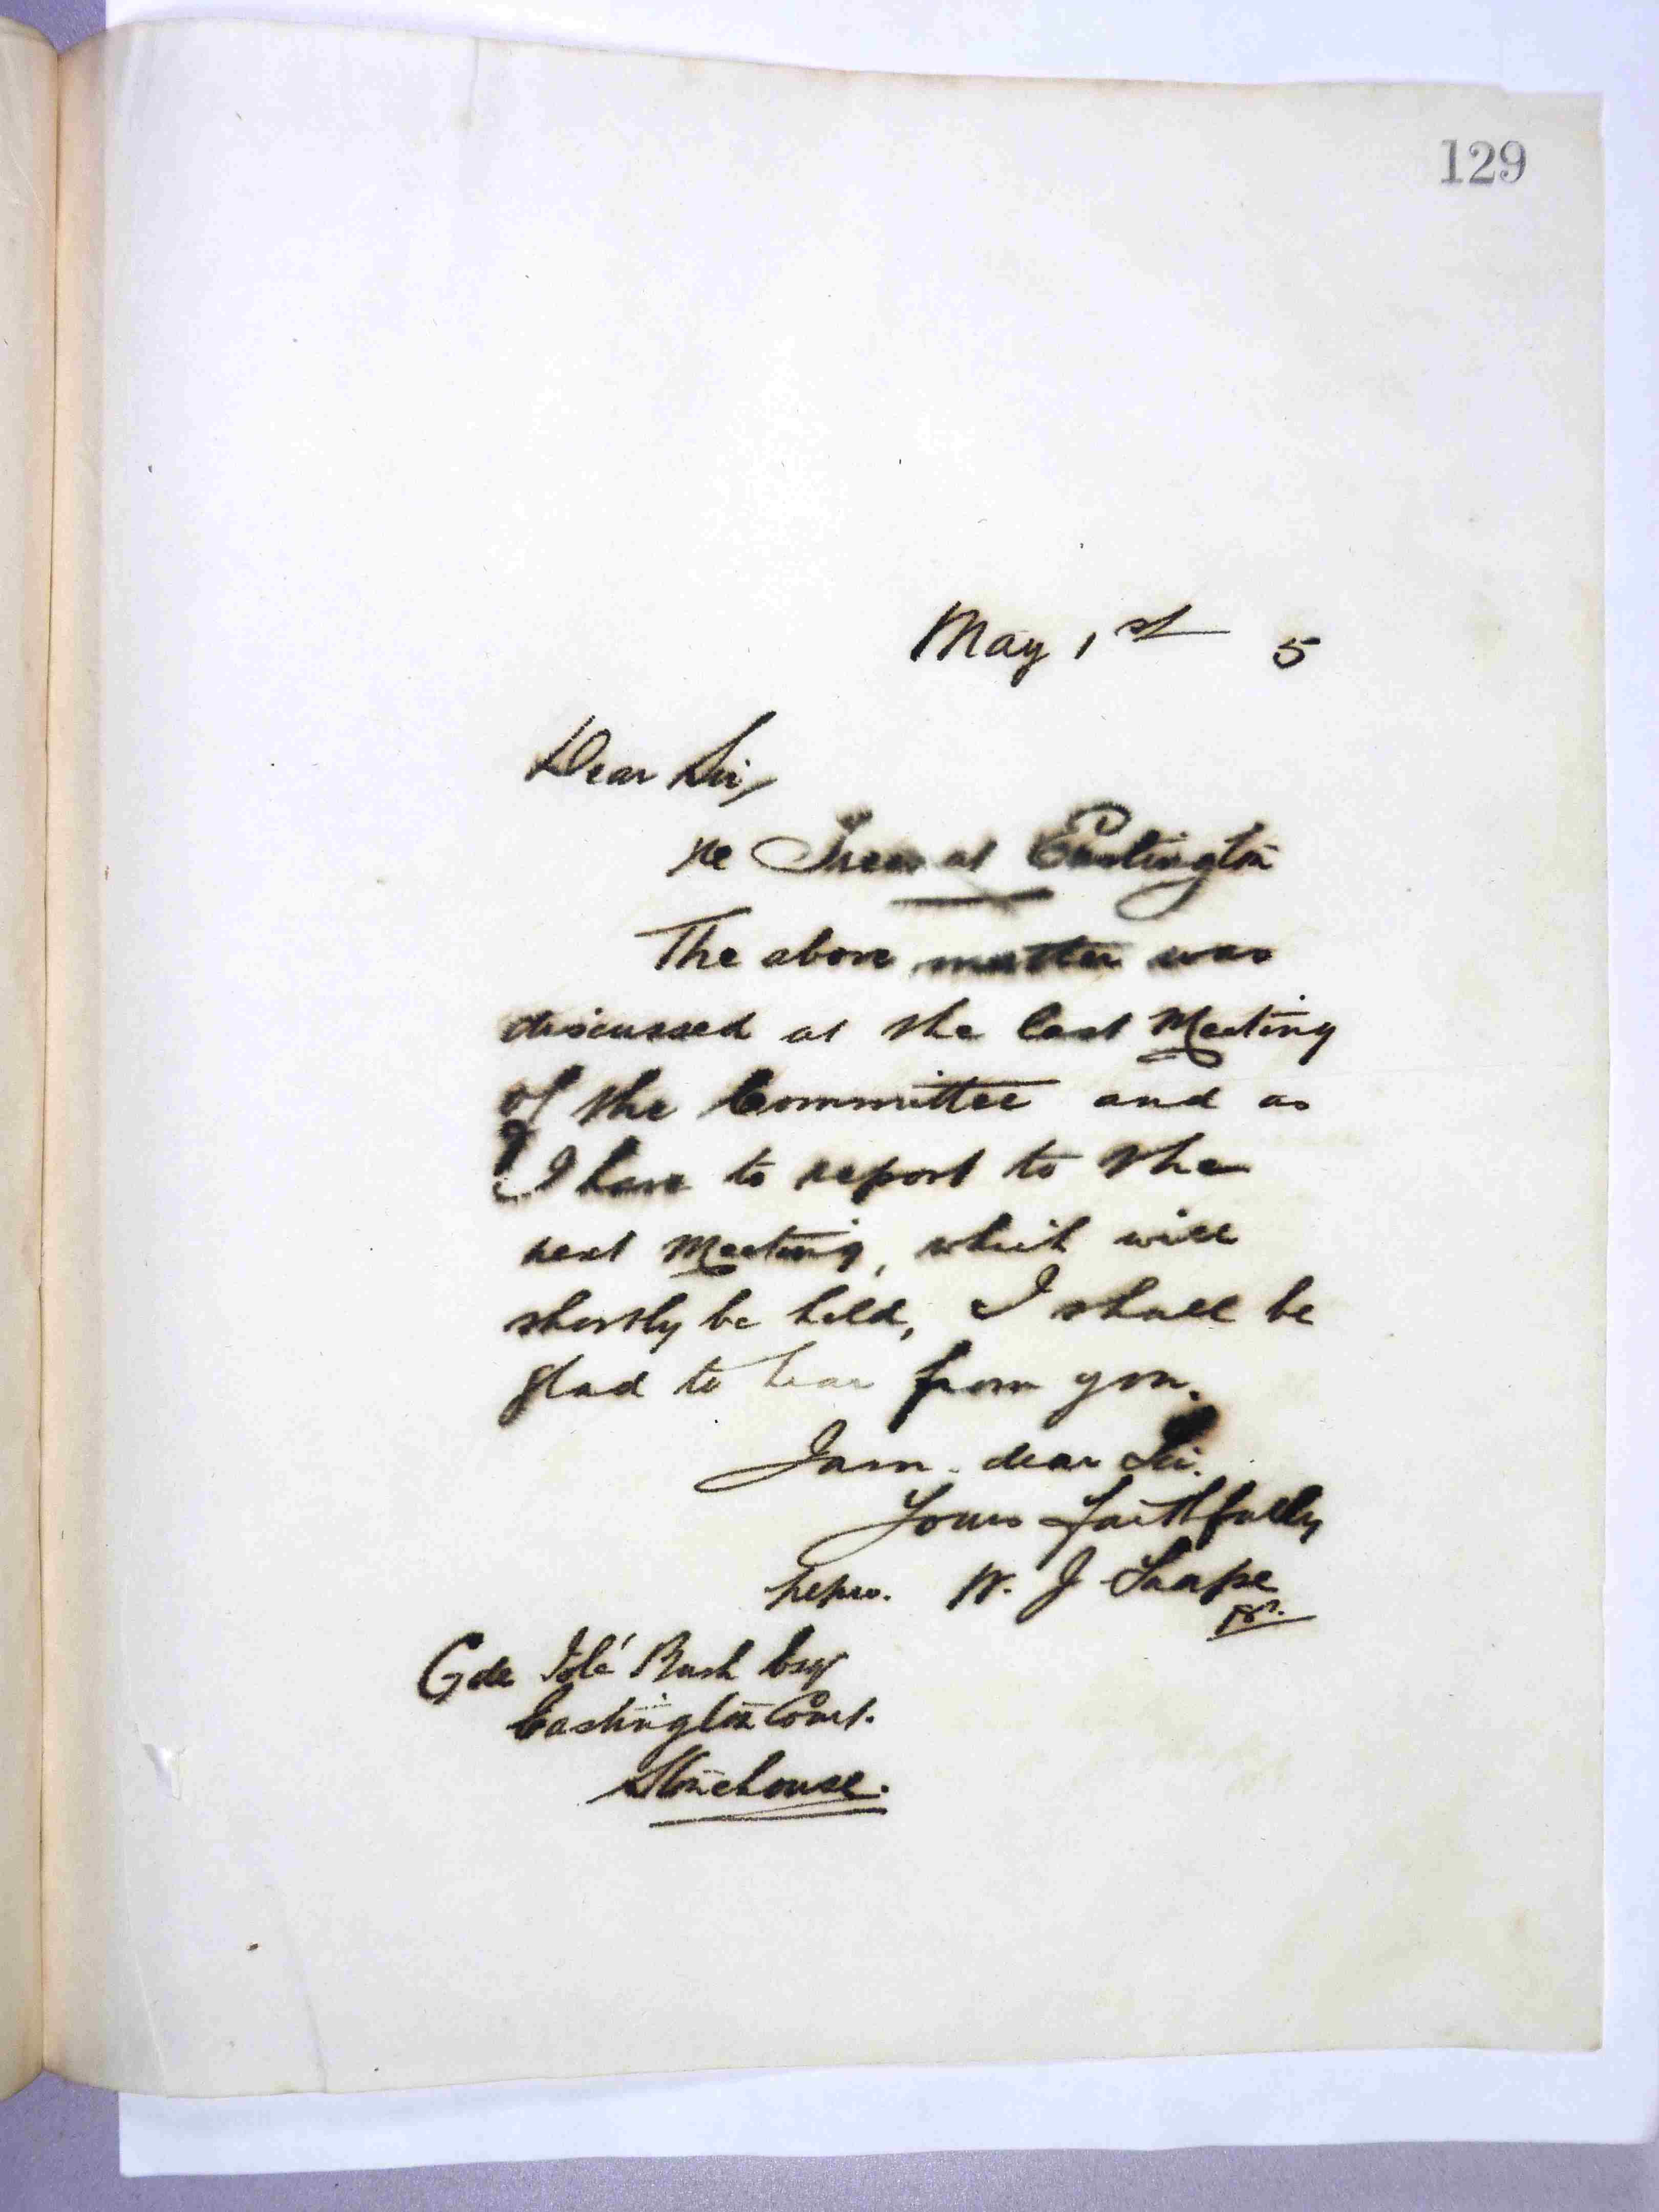 129
May 1st 5
Dear Sir,
re Trees at Eastington
The above matter was
discussed at the last Meeting
of the Committee and as
I have to report to the
next Meeting, which will
shortly be held, I shall be
glad to hear from you.
I am, dear Sir.
Yours faithfully
pepro. W. J Snape
G de Bush Esq
Eastington Court.
Stonehouse.